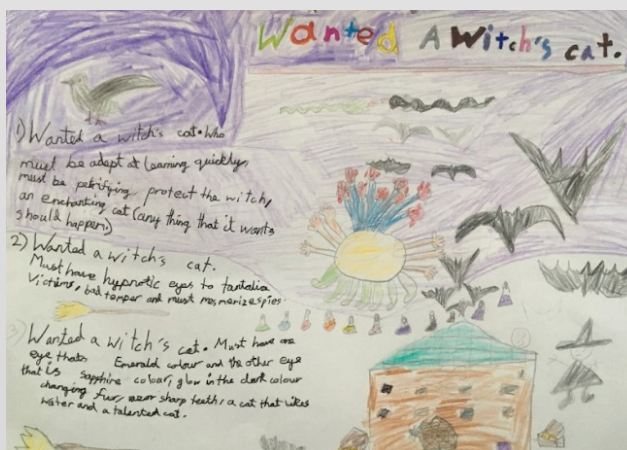 Wanted A Witch's cat.
1) Wanted a witch's cat. Who
must be adept at learning quickly,
must be petrifying, protect the witch,
an enchanting cat (any thing that it wants
should happen.)
2) Wanted a witch's cat.
Must have hypnotic eyes to
victims, bad temper and must mesmerize spies.
3) Wanted a witch's cat. Must have one
eye thats Emerald colour and the other eye
that is sapphire colour, glow in the dark colour
changing fur, sharp teeth, a cat that likes
water and a talented cat.